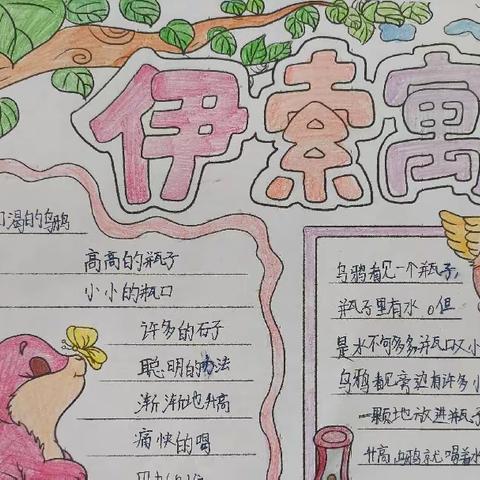 伊索寓
口渴的乌鸦
高高的瓶子
小小的瓶口
许多的石子
聪明的办法
渐渐地升高
痛快的喝
乌鸦看见一个瓶子,
瓶子里有水。但
是水不何多多瓶口又小
乌鸦看见旁边有许多小
一颗地放进瓶子
升高乌鸦就喝着水